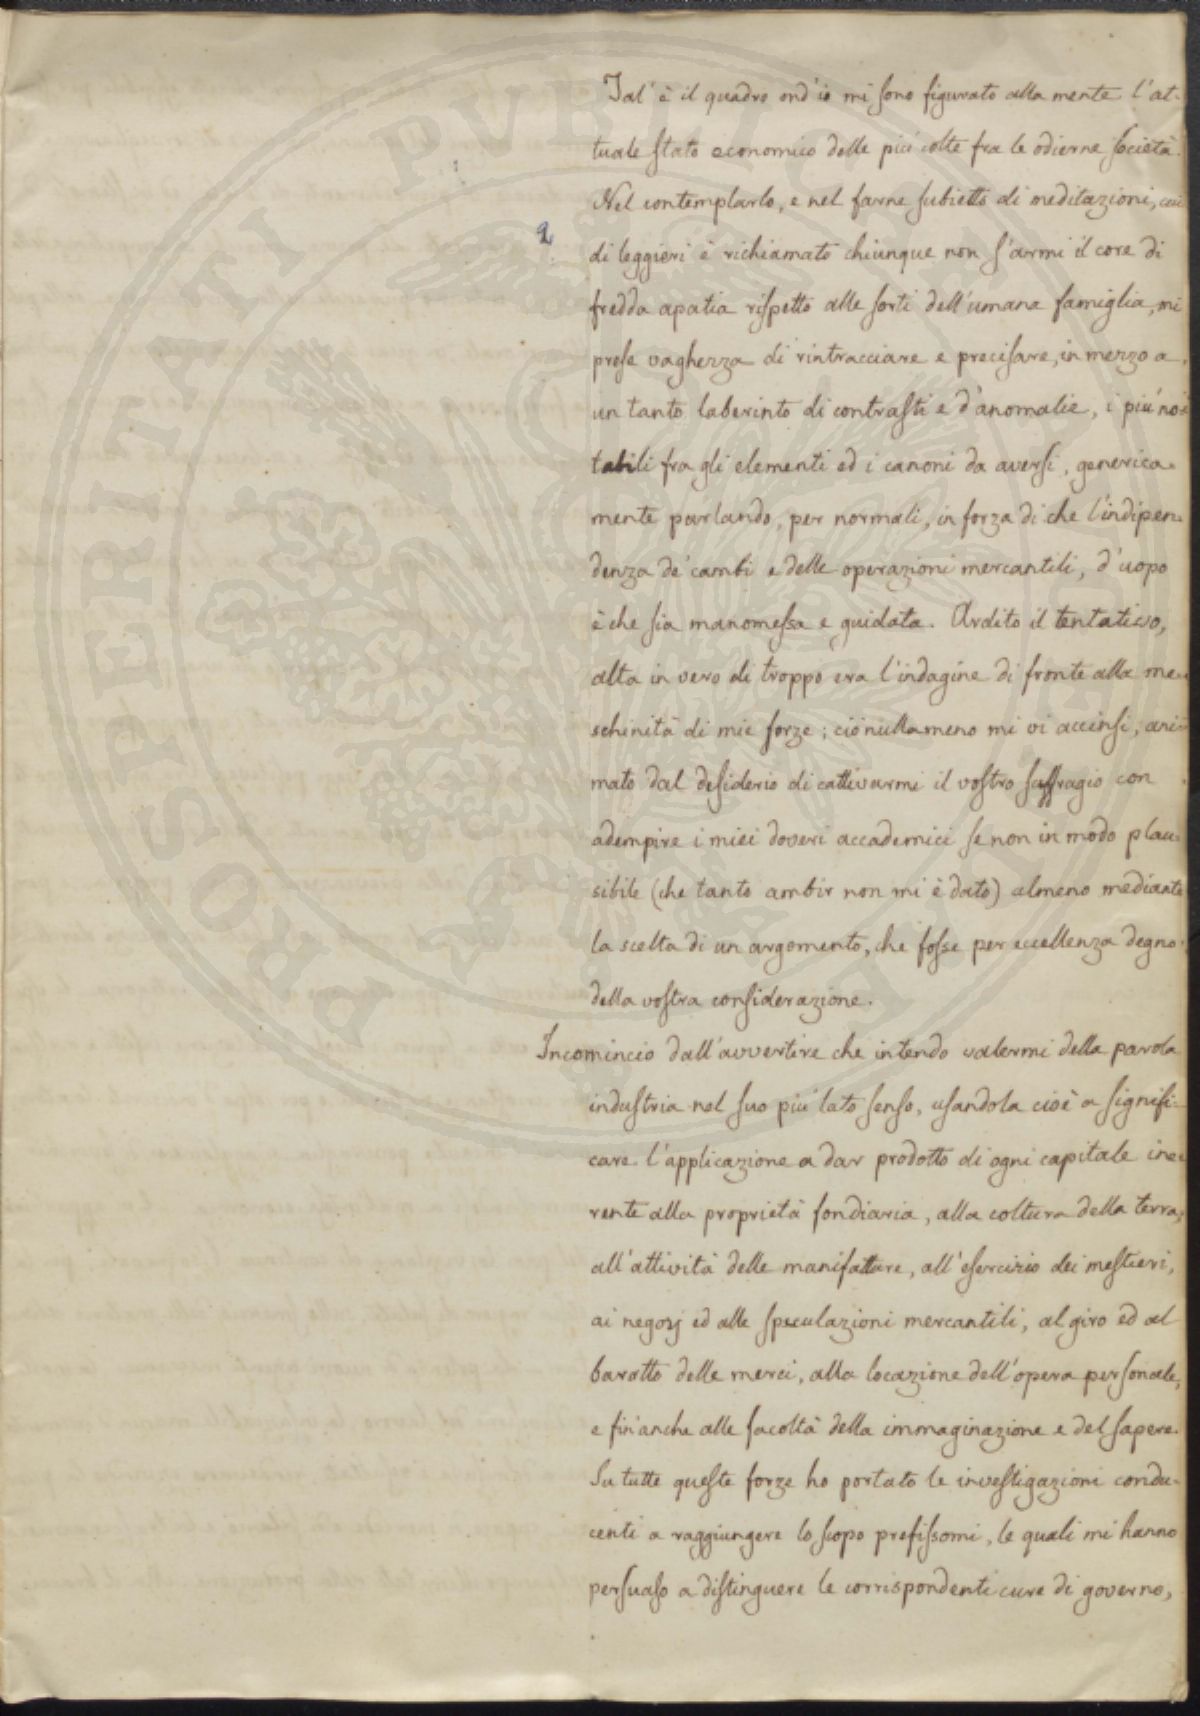 Tal' è il quadro ond'io mi sono figurato alla mente l'at-
tuale stato economico delle più colte fra le odierne società.
Nel contemplarlo, e nel farne subietto di meditazioni, cui
2
di leggieri è richiamato chiunque non s'armi il core di
fredda apatia rispetto alle sorti dell'umana famiglia, mi
prese vaghezza di rintracciare e precisare, in mezzo a
un tanto laberinto di contrasti e d'anomalie, i più no-
tabili fra gli elementi ed i canoni da aversi, generica-
mente parlando, per normali, in forza di che l'indipen-
denza de' cambi e delle operazioni mercantili, d'uopo
è che sia manomessa e guidata. Ardito il tentativo,
alta in vero di troppo era l'indagine di fronte alla me-
schinità di mie forze; ciò nullameno mi vi accinsi, ani-
mato dal desiderio di cattivarmi il vostro suffragio con
adempire i miei doveri accademici se non in modo plau-
sibile (che tanto ambir non mi è dato) almeno mediante
la scelta di un argomento, che fosse per eccellenza degno
della vostra considerazione.
Incomincio dall'avvertire che intendo valermi della parola
industria nel suo più lato senso, usandola cioè a signifi-
care l'applicazione a dar prodotto di ogni capitale ine-
rente alla proprietà fondiaria, alla coltura della terra,
all'attività delle manifatture, all'esercizio dei mestieri,
ai negozj ed alle speculazioni mercantili, al giro ed al
barotto delle merci, alla locazione dell'opera personale,
e fin'anche alle facoltà della immaginazione e del sapere.
Su tutte queste forze ho portato le investigazioni condu-
centi a raggiungere lo scopo prefissomi, le quali mi hanno
persuaso a distinguere le corrispondenti cure di governo,
PROSPERITATI PUBLICAE